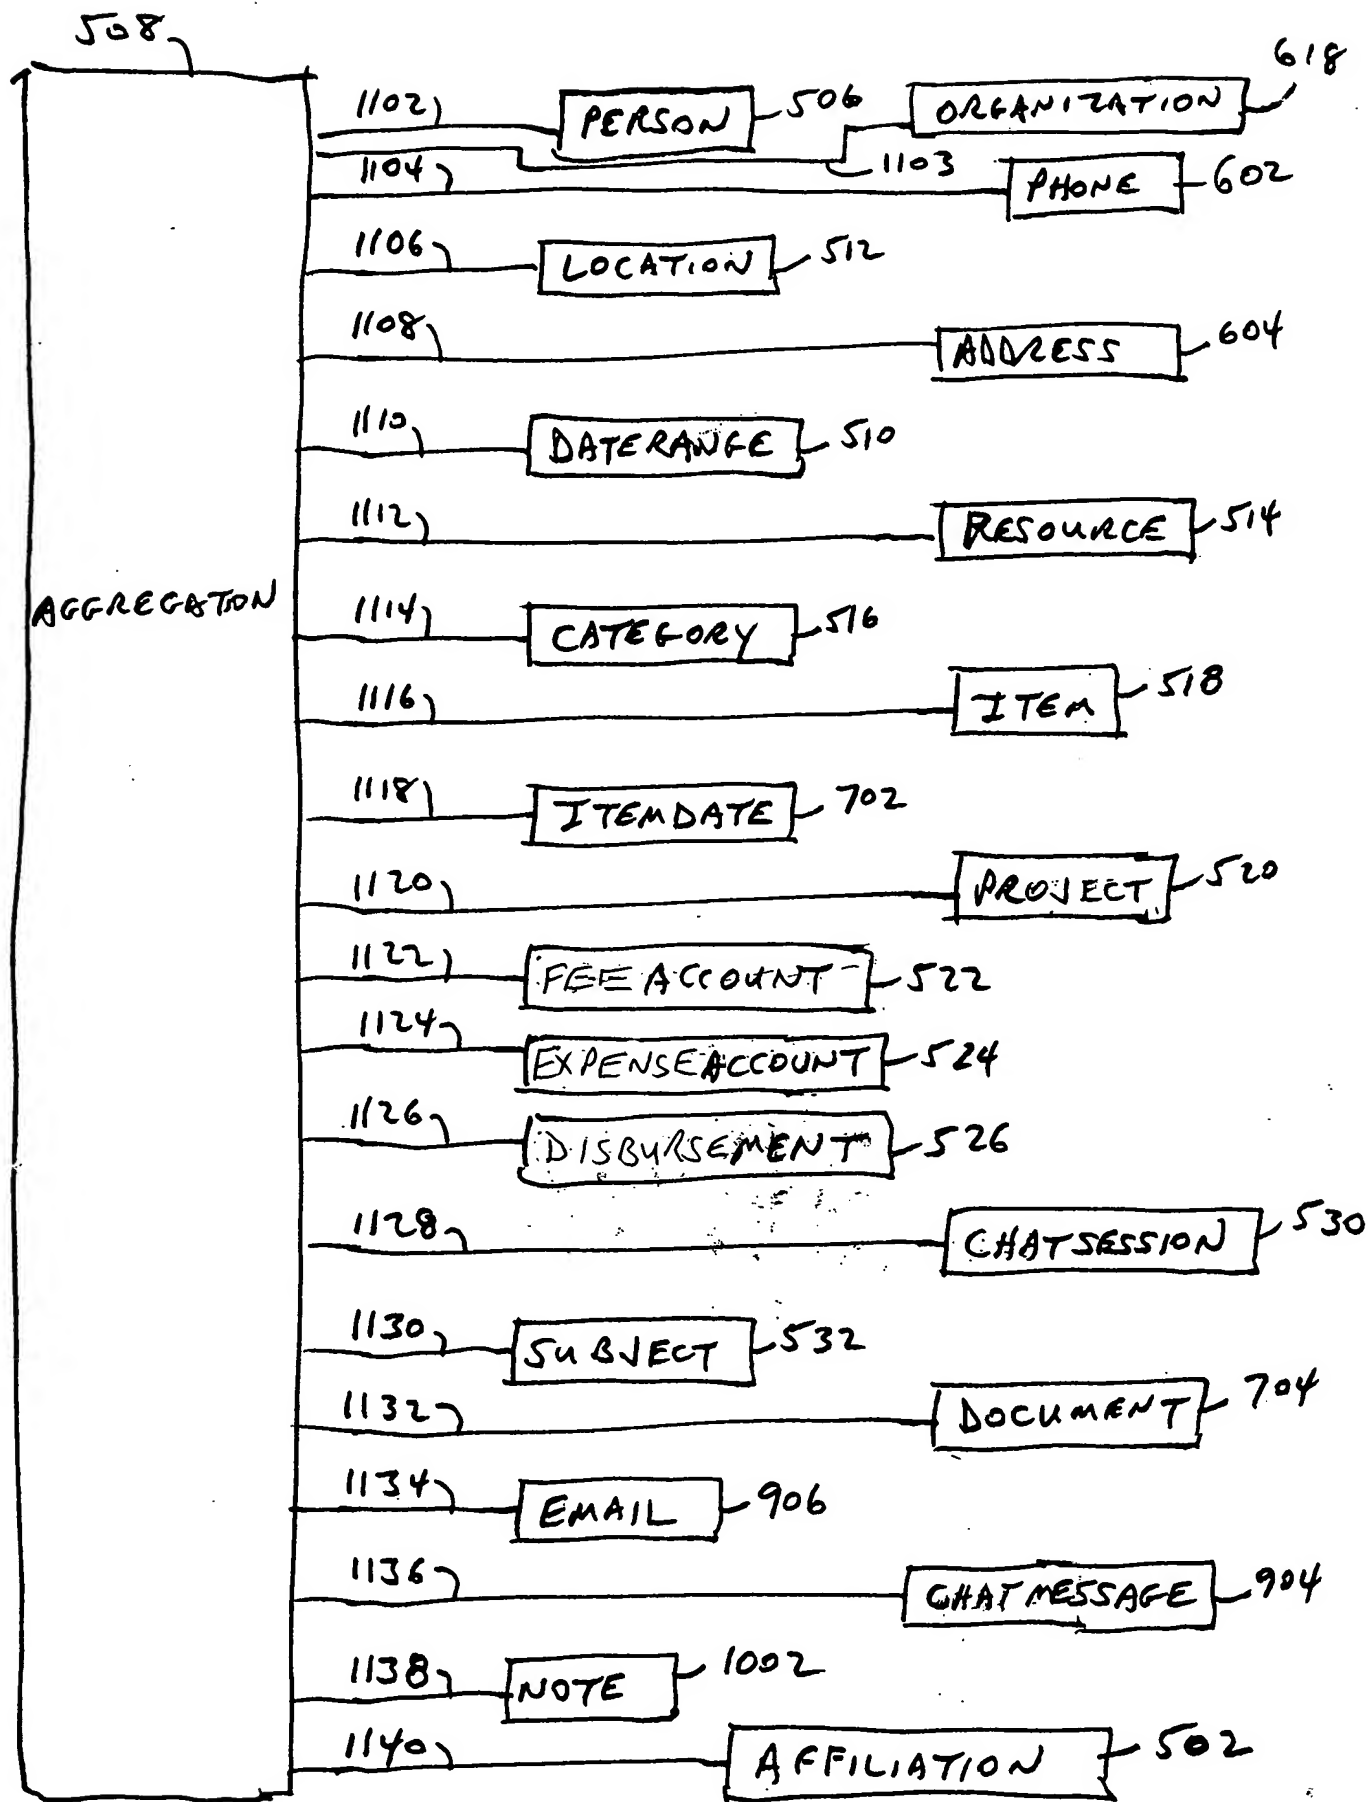 508
1102 PERSON 506 ORGANIZATION 618
1103
1104 PHONE 602
1106 LOCATION 512
1108 ADDRESS 604
1110 DATERANGE 510
1112 RESOURCE 514
AGGREGATION
1114 CATEGORY 516
1116 ITEM 518
1118 ITEMDATE 702
1120 PROJECT 520
1122 FEE ACCOUNT 522
1124 EXPENSEACCOUNT 524
1126 DISBURSEMENT 526
1128 CHATSESSION 530
1130 SUBJECT 532
1132 DOCUMENT 704
1134 EMAIL 906
1136 CHAT MESSAGE 904
1138 NOTE 1002
1140 AFFILIATION 502